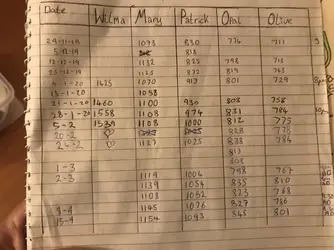 Date Wilma Mary Patrick Opal Olive
29-11-19 1093 830 774 711
5-12-19 818
12-12-19 1132 825 798
23-12-19 1125 872 819
1-20 1425 1070 913 801 729
13-1-20 1058
21-1-20 1460 1100 930 803 758
28-1-20 1558 1108 974 831 784
5-2 1539 1108 1000 812 775
20-2 ♡ 828 778
24-2 ♡ 1127 1025 838 784
813
1-3 803
2-3 1119 1004 798 767
1139 1054 835 810
1108 1052 823 768
9-3 1145 1026 827 786
15-9 1154 1093 845 801